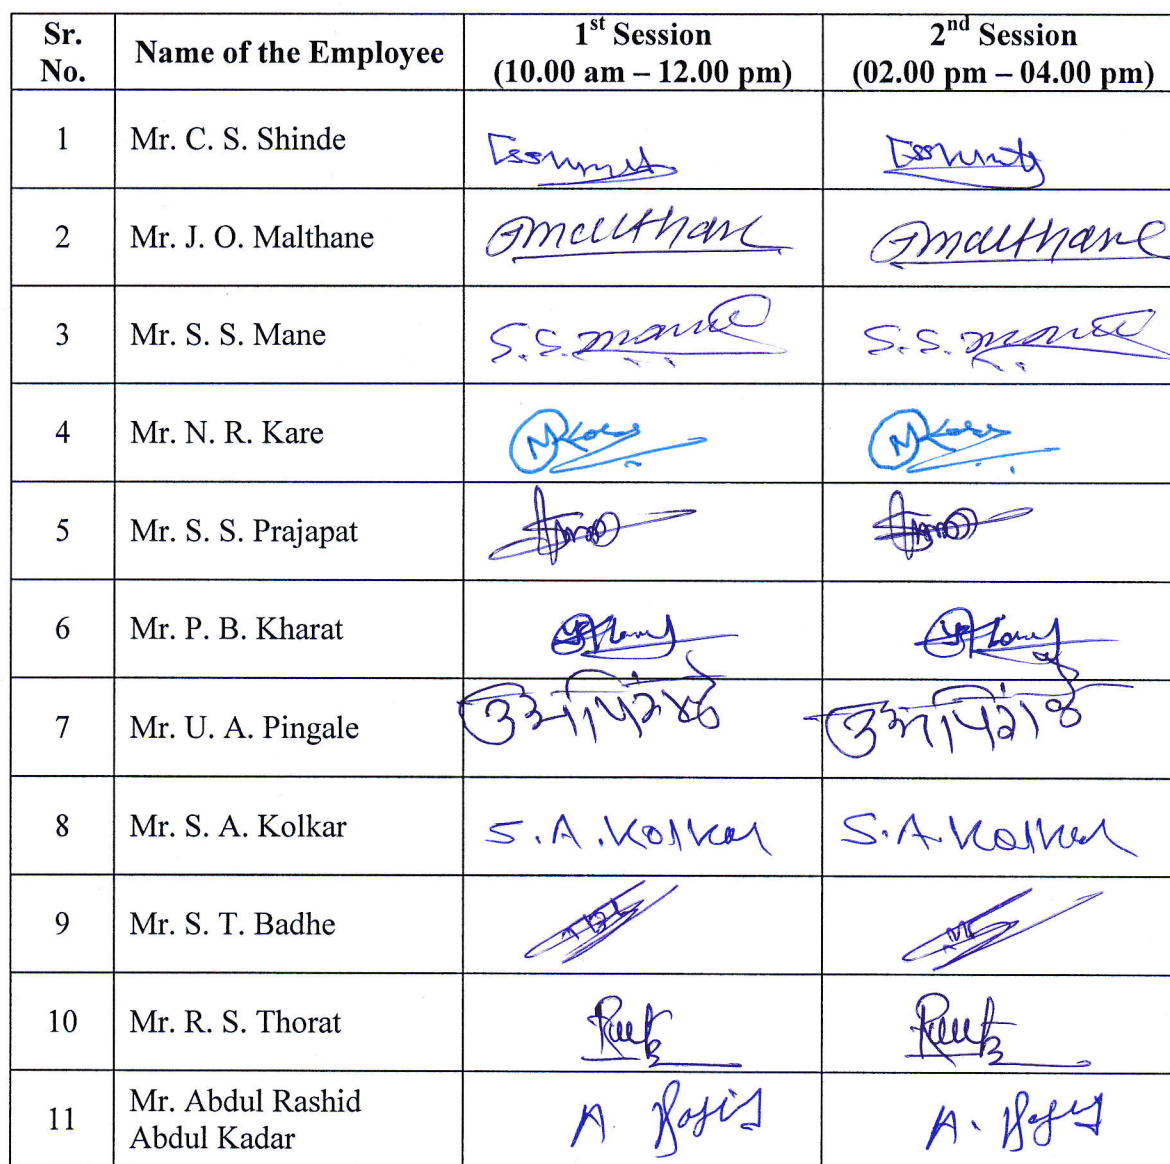 Sr. No. Name of the Employee 1st Session (10.00 am – 12.00 pm) 2nd Session (02.00 pm – 04.00 pm)
1 Mr. C. S. Shinde
2 Mr. J. O. Malthane Jmalthane Jmalthane
3 Mr. S. S. Mane S.S. mane S.S. mane
4 Mr. N. R. Kare NKare NKare
5 Mr. S. S. Prajapat
6 Mr. P. B. Kharat
7 Mr. U. A. Pingale
8 Mr. S. A. Kolkar S.A. Kolkar S.A. Kolkar
9 Mr. S. T. Badhe
10 Mr. R. S. Thorat
11 Mr. Abdul Rashid
Abdul Kadar